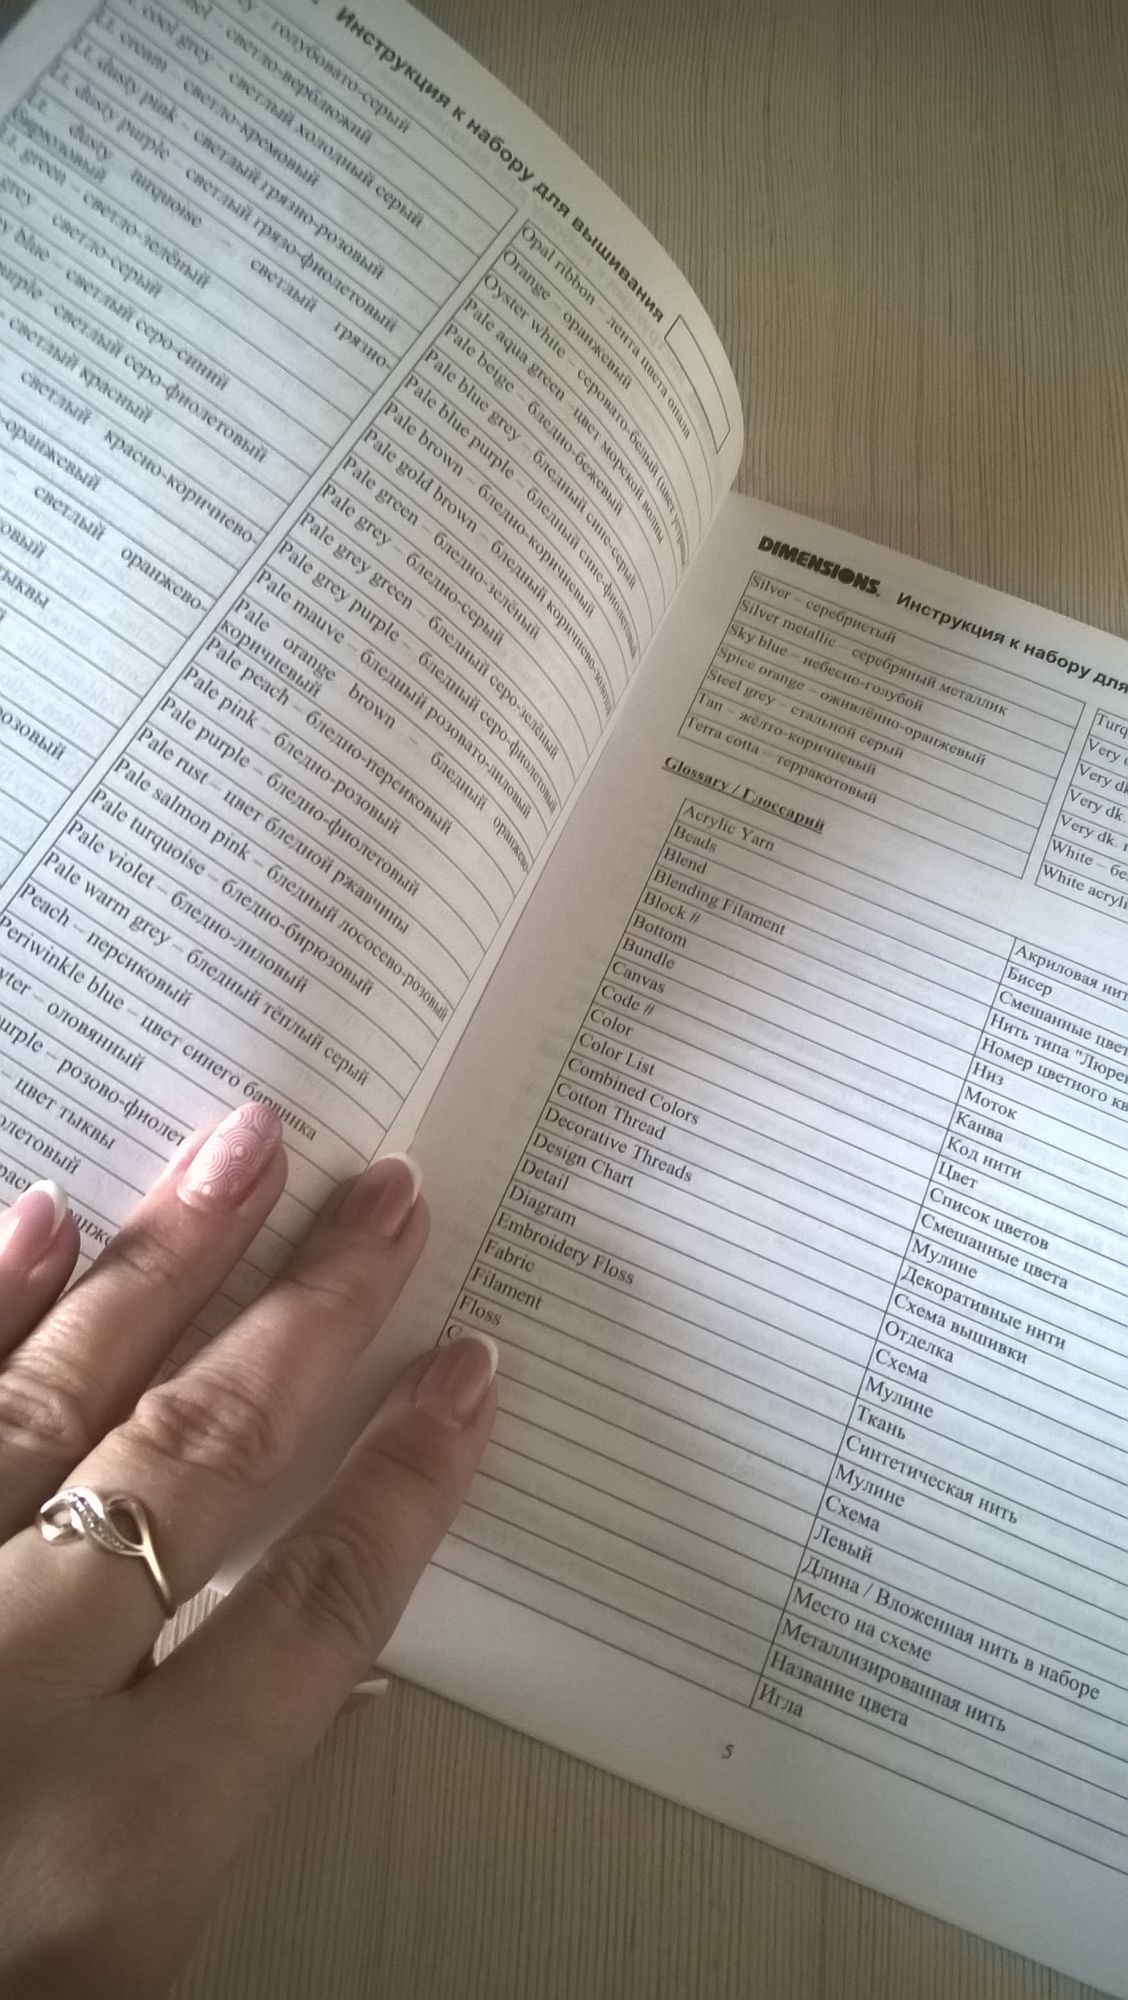 Инструкция к набору для вышивания
голубовато-серый
светло-верблюжий
cool grey – светлый холодный серый
Lt. cream – светло-кремовый
Lt. dusty pink – светлый грязно-розовый
Lt. dusty purple – светлый грязо-фиолетовый
Lt. dusty turquoise – светлый грязно-
бирюзовый
green – светло-зелёный
grey – светло-серый
blue – светлый серо-синий
светлый серо-фиолетовый
светлый красный
светлый красно-коричнево-
оранжевый
светлый оранжево-
Opal ribbon – лента цвета опала
Orange – оранжевый
Oyster white – серовато-белый (цвет
Pale aqua green – цвет морской волны
Pale beige – бледно-бежевый
Pale blue grey – бледный сине-серый
Pale blue purple – бледный сине-фиолетовый
Pale brown – бледно-коричневый
Pale gold brown – бледный коричнево-золотой
Pale green – бледно-зелёный
Pale grey – бледно-серый
Pale grey green – бледный серо-зелёный
Pale grey purple – бледный серо-фиолетовый
Pale mauve – бледный розовато-лиловый
Pale orange brown – бледный оранжево-
коричневый
Pale peach – бледно-персиковый
Pale pink – бледно-розовый
Pale purple – бледно-фиолетовый
Pale rust – цвет бледной ржавчины
Pale salmon pink – бледный лососево-розовый
Pale turquoise – бледно-бирюзовый
Pale violet – бледно-лиловый
Pale warm grey – бледный тёплый серый
Peach – персиковый
Periwinkle blue – цвет синего барвинка
– оловянный
– розово-фиолет
– цвет тыквы
DIMENSIONS® Инструкция к набору для
Silver – серебристый
Silver metallic – серебряный металлик
Sky blue – небесно-голубой
Spice orange – оживлённо-оранжевый
Steel grey – стальной серый
Tan – жёлто-коричневый
Terra cotta – терракотовый
Turq
Very
Very dk
Very dk.
Very dk.
White – бе
White acryli
Glossary / Глоссарий
Acrylic Yarn Акриловая нит
Beads Бисер
Blend Смешанные цвет
Blending Filament Нить типа "Люре
Block # Номер цветного кв
Bottom Низ
Bundle Моток
Canvas Канва
Code # Код нити
Color Цвет
Color List Список цветов
Combined Colors Смешанные цвета
Cotton Thread Мулине
Decorative Threads Декоративные нити
Design Chart Схема вышивки
Detail Отделка
Diagram Схема
Embroidery Floss Мулине
Fabric Ткань
Filament Синтетическая нить
Floss Мулине
Схема
Левый
Длина / Вложенная нить в наборе
Место на схеме
Металлизированная нить
Название цвета
Игла
5